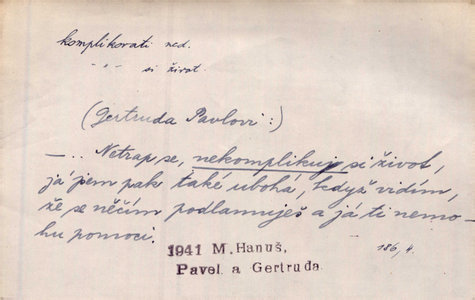 komplikovati ned.
-"- si život.
(Gertruda Pavlovi:)
–.. Netrap se, nekomplikuj si život,
já jsem pak také ubohá, když vidím,
že se něčím podlamuješ a já ti nemo-
hu pomoci.
1941 M. Hanuš,
Pavel a Gertruda
186,4.